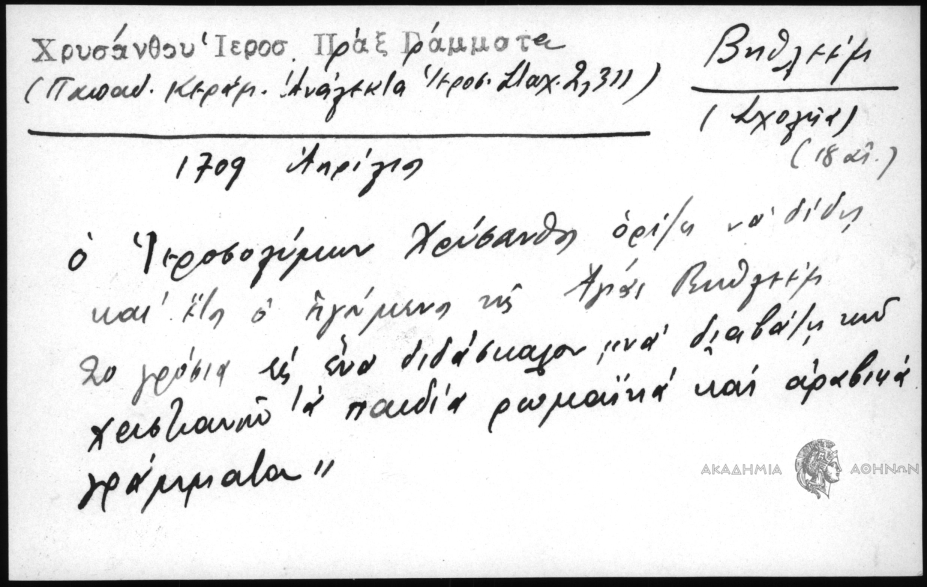 Χρυσάνθου Ἱεροσ. Πράξ Γράμματα
(Παπαδ. Κεράμ. Ἀνάλεκτα Ἱεροσ. Σταχ. 2, 311)
Βηθλεέμ
(Σχολεῖα)
(18 αἰ.)
1709 Ἀπρίλιος
ὁ Ἱεροσολύμων Χρύσανθος ὁρίζει νά δίδῃ
κατ' ἔτος ὁ ἡγούμενος τῆς Ἁγίας Βηθλεέμ
20 γρόσια εἰς ἕνα διδάσκαλον "νά διαβάζῃ τῶν
χριστιανῶν τά παιδία ρωμαϊκά καί ἀραβικά
γράμματα"
ΑΚΑΔΗΜΙΑ ΑΘΗΝΩΝ